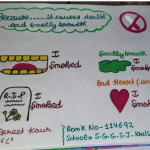 Because.... it causes death
and smelly breath
I
smoked
Smelly breath
I
smoked
Bad Heart
R.I.P
I
smoked
I
smoked
Kaur
Roll No-114692
School: S.G.G.S.J.